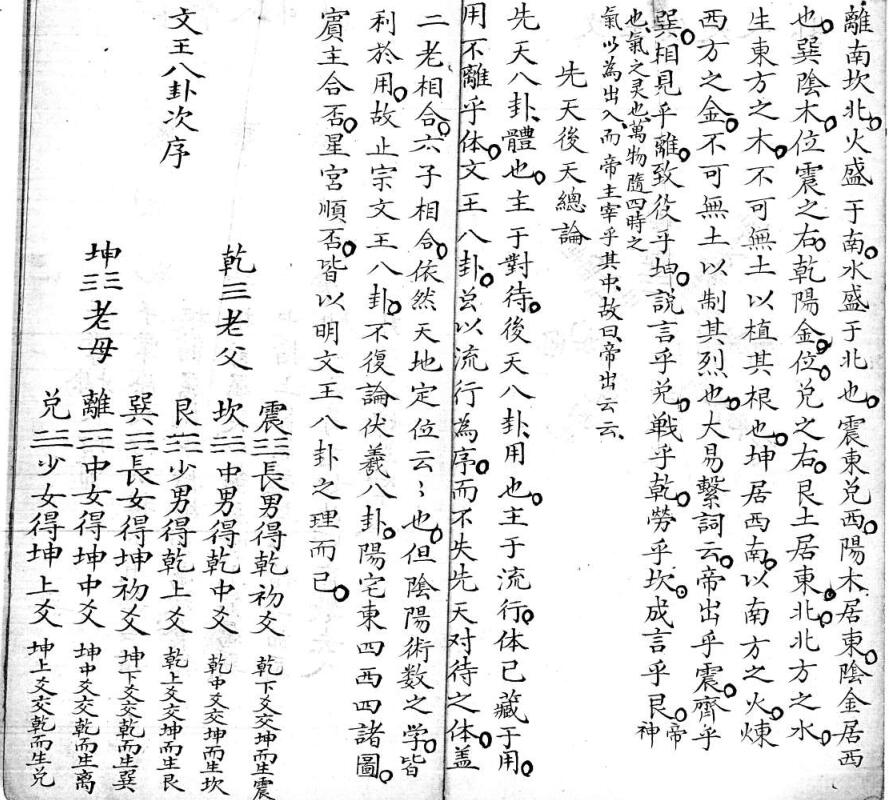 離南坎北。火盛于南。水盛于北也。震東兌西。陽木居東。陰金居西
也。巽陰木。位震之右。乾陽金。位兌之右。艮土居東北。北方之水。
生東方之木。不可無土以植其根也。坤居西南。以南方之火。煉
西方之金。不可無土以制其烈也。大易繫詞云。帝出乎震。齊乎
巽。相見乎離。致役乎坤。説言乎兌。戰乎乾。勞乎坎。成言乎艮。帝神
也、氣之灵也、萬物隨四時之
氣以為出入、而帝主宰乎其中、故曰帝出云云、
先天後天總論
先天八卦、體也。主于對待。後天八卦、用也。主于流行。体已藏于用。
用不離乎体。文王八卦。总以流行為序。而不失先天对待之体。盖
二老相合。六子相合。依然天地定位云〻也。但陰陽術数之学。皆
利於用。故止宗文王八卦。不復論伏羲八卦。陽宅東四西四諸圖。
賓主合否。星宮順否。皆以明文王八卦之理而已。
文王八卦次序
乾☰老父
坤☷老母
震☳長男得乾初爻 乾下爻交坤而生震
坎☵中男得乾中爻 乾中爻交坤而生坎
艮☶少男得乾上爻 乾上爻交坤而生艮
巽☴長女得坤初爻 坤下爻交乾而生巽
離☲中女得坤中爻 坤中爻交乾而生离
兌☱少女得坤上爻 坤上爻交乾而生兌